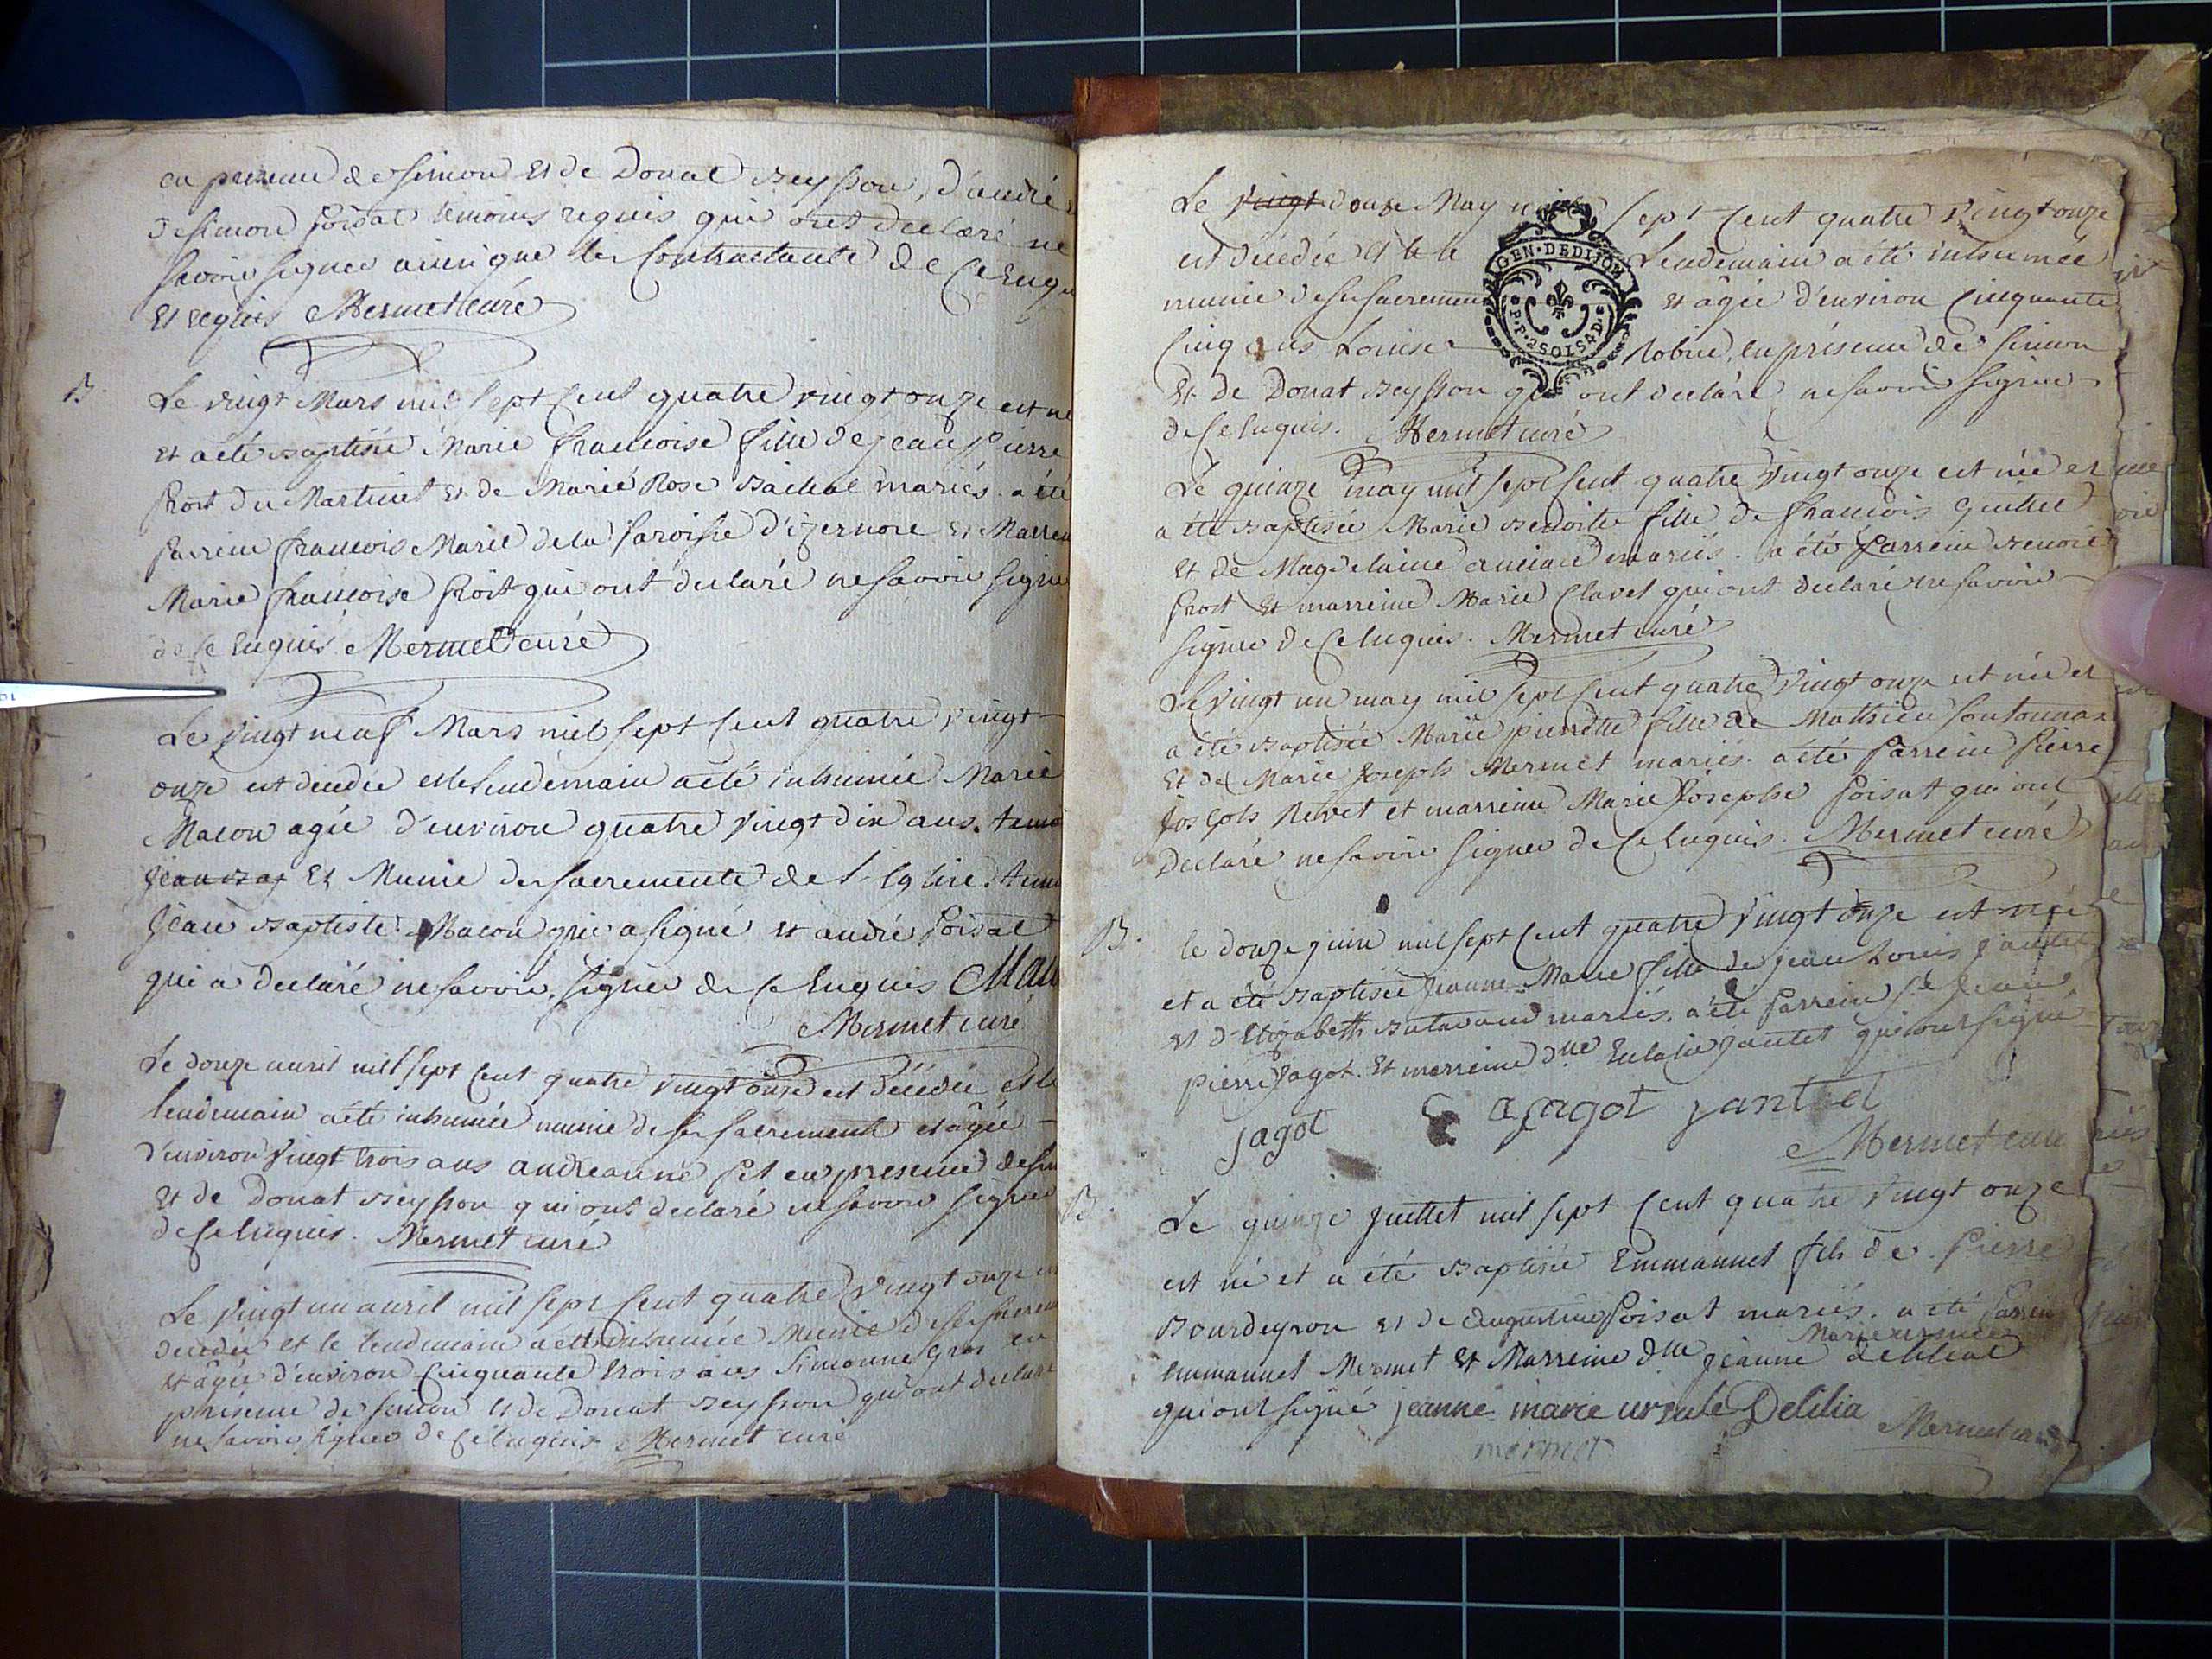 en presence de Simon et de Donat Beysson, d'andré
de simon Poisat temoins requis qui ont declaré ne
savoir signer ainsi que les Contractants de ce enqu
et requis Mermet curé
B.
Le vingt Mars mil sept cent quatre vingt onze est né
et a été Baptisée Marie francoise fille de jean pierre
Prost du Martinet et de Marie Rose mariés. a été
Parrein francois Marie de la Paroisse d'izernore et Marrei
Marie francoise Prost qui ont declaré ne savoir signer
de ce enquis Mermet curé
Le vingt neuf Mars mil sept cent quatre vingt
onze est decedée et le lendemain a été inhumée Marie
Macon agée d'environ quatre vingt dix ans. temo
jean Bap et Munie des sacrements de l'Eglise. tem
jean Baptiste Macon qui a signé et andré Poisat
qui a declaré ne savoir signer de ce Enquis Mac
Mermet curé
Le douze avril mil sept cent quatre vingt onze est décédée et le
lendemain a été inhumée munie de ses sacrements et âgée
d'environ vingt trois ans andreanne en presence de sim
et de Donat Beysson qui ont declaré ne savoir signer
de ce enquis. Mermet curé
Le vingt un avril mil sept cent quatre vingt onze e
decedée et le lendemain a été inhumée Munie de ses sacrem
et âgée d'environ cinquante trois ans Simonne Gros en
présence de simon et de Donat Beysson qui ont declaré
ne savoir signer de ce enquis Mermet curé
Le vingt douze May sept cent quatre vingt onze
est décédée et le le Lendemain a été inhumée
munie de ses sacrements et âgée d'environ cinquante
cinq ans Louise Robin, en présence de simon
et de Donat Beysson qui ont declaré ne savoir signer
de ce enquis. Mermet curé
GEN·DEDIJON
Le quinze may mil sept cent quatre vingt onze est née et
a été Baptisée Marie Benoite fille de francois
et de Magdelaine mariés. a été Parrein Benoit
Prost et marreine Marie Clavet qui ont declaré ne savoir
signer de ce enquis. Mermet curé
Le vingt un may mil sept cent quatre vingt onze est née et
a été Baptisée Marie pierrette fille de Mathieu
et de Marie Joseph Mermet mariés. a été Parrein Pierre
Joseph Rivet et marreine Marie Josephe Poisat qui ont
declaré ne savoir signer de ce Enquis. Mermet curé
B.
le douze juin mil sept cent quatre vingt onze est née
et a été Baptisée jeanne Marie fille de jean Louis jantet
et d'Elizabeth mariés. a été Parrein Sr jean
pierre jagot. et marreine dlle Eulalie jantet qui ont signé
jagot a jagot jantet
Mermet curé
B.
Le quinze juillet mil sept cent quatre vingt onze
est né et a été Baptisé Emmanuel fils de Pierre
Bourdeyron et de Poisat mariés. a été Parrein
Marie ursule
Emmanuel Mermet et Marreine dlle jeanne
qui ont signé jeanne marie ursule Delilia
mermet Mermet curé